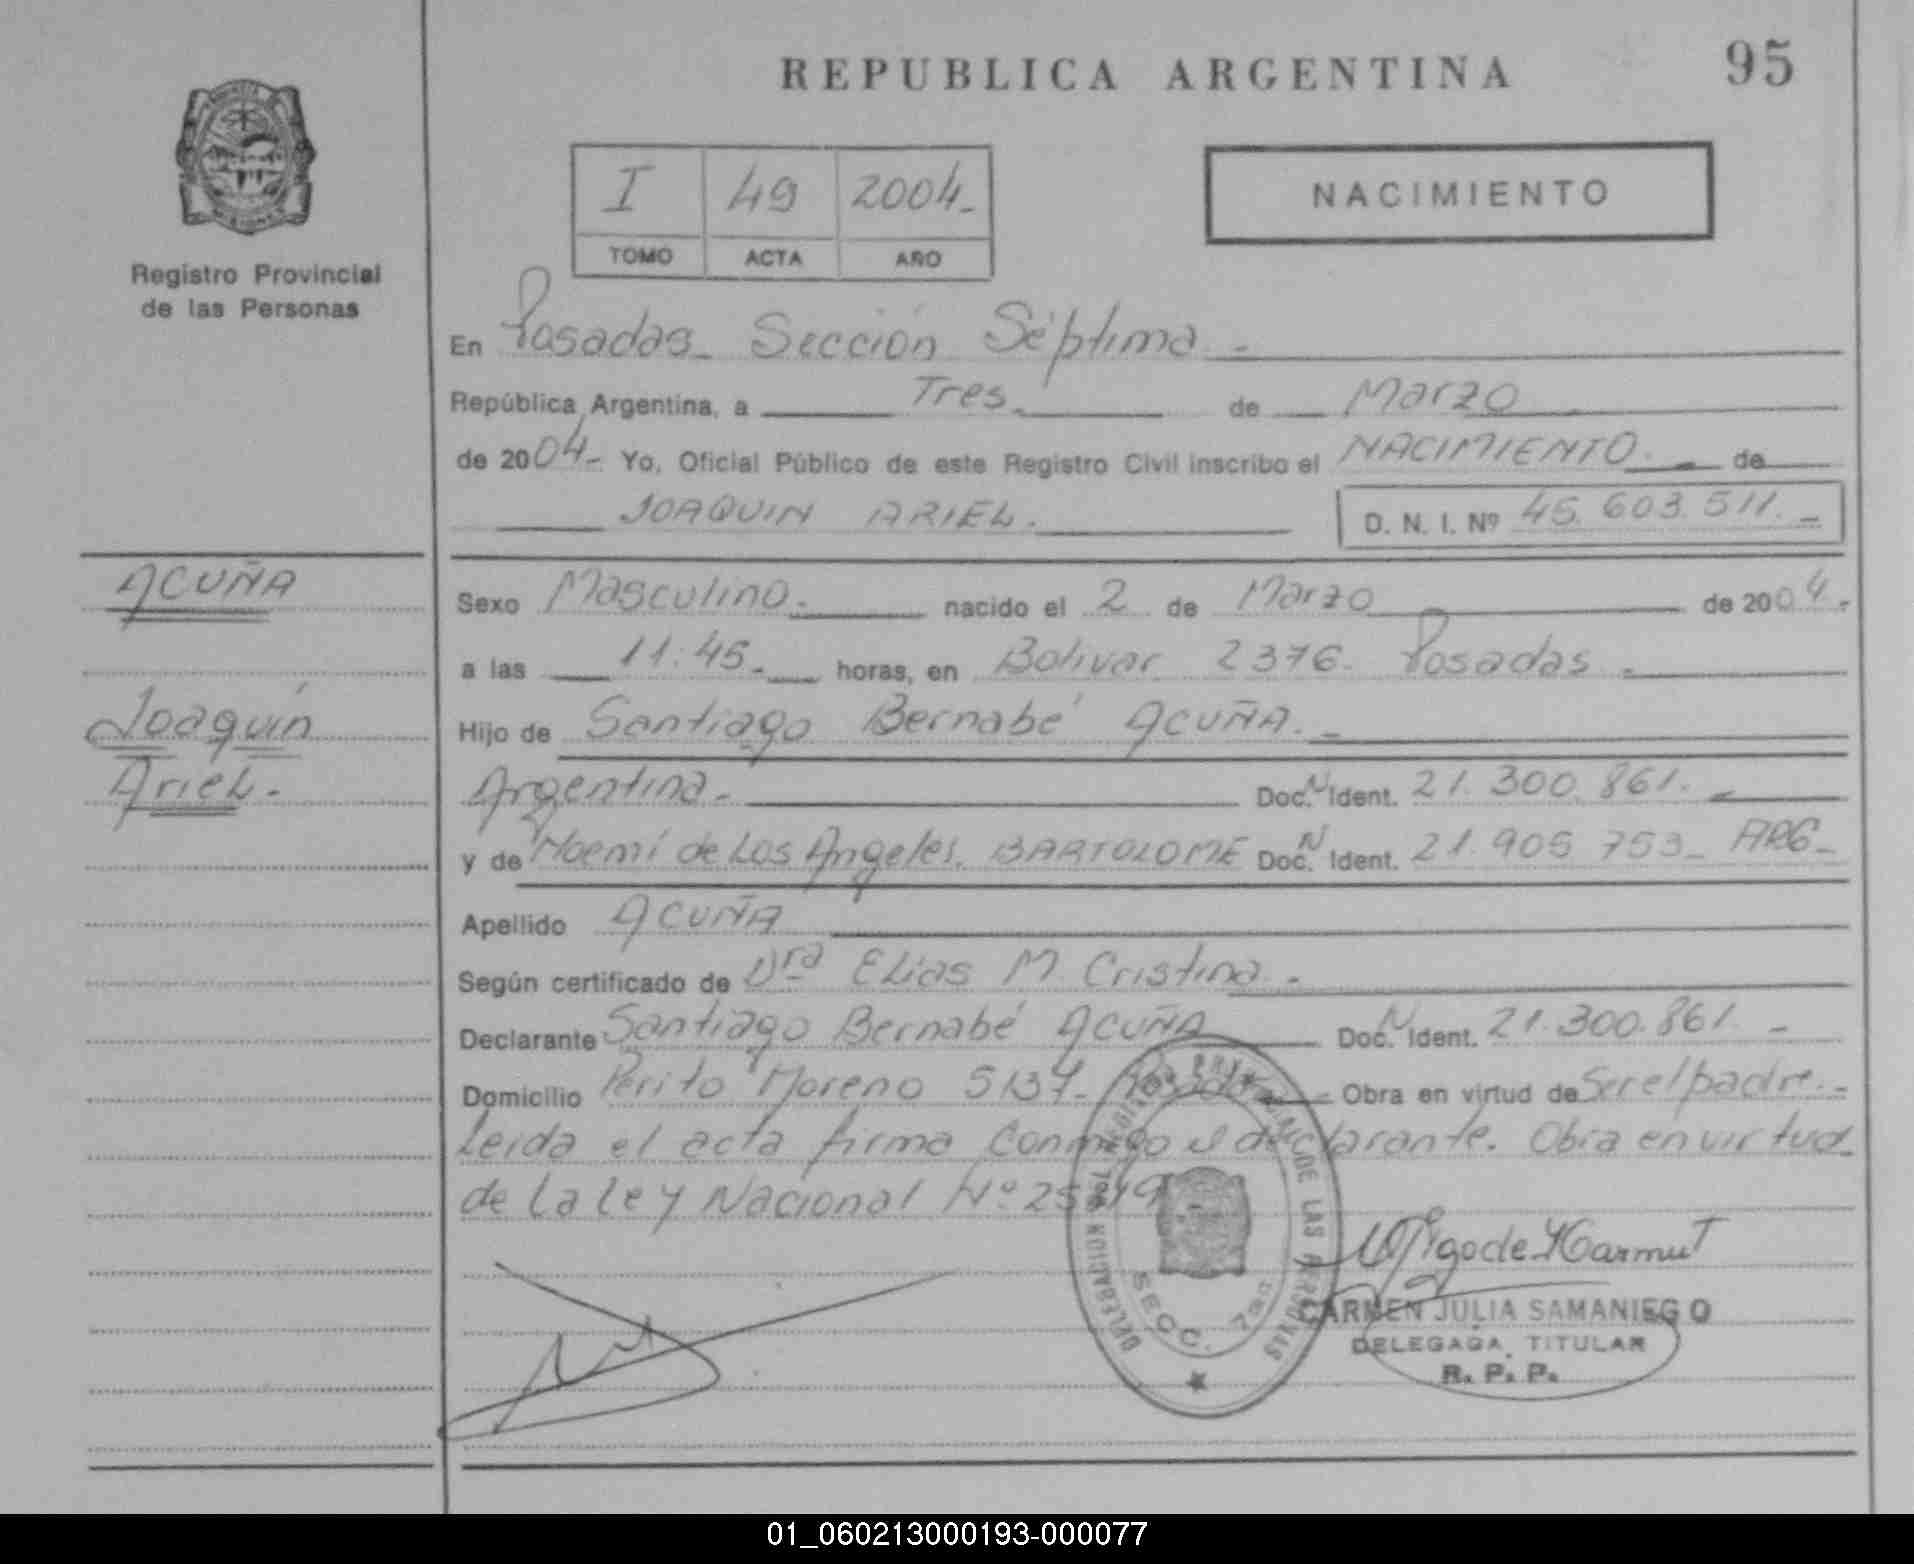 REPUBLICA ARGENTINA
95
I 49 2004.-
TOMO ACTA AÑO
NACIMIENTO
Registro Provincial
de las Personas
En Posadas. Sección Séptima.-
República Argentina, a Tres. de Marzo
de 2004.- Yo, Oficial Público de este Registro Civil inscribo el NACIMIENTO.- de
JOAQUIN ARIEL.
D. N. I. Nº 45.603.511.-
ACUÑA
Joaquín
Ariel.-
Sexo Masculino.- nacido el 2 de Marzo de 2004.-
a las 11:45.- horas, en Bolivar 2376. Posadas.-
Hijo de Santiago Bernabé ACUÑA.-
Argentina.- Doc. N Ident. 21.300.861.-
y de Noemí de Los Angeles. BARTOLOME Doc. N Ident. 21.905.753- ARG-
Apellido ACUÑA
Según certificado de Dra Elias M. Cristina.-
Declarante Santiago Bernabé ACUÑA Doc. N Ident. 21.300.861.-
Domicilio Perito Moreno 5137- Posadas Obra en virtud de Ser el padre.-
Leida el acta firma Conmigo el declarante. Obra en virtud
de La Ley Nacional Nº
DELEGACION DEL REGISTRO PROVINCIAL DE LAS PERSONAS
SECC. 7ma
CARMEN JULIA SAMANIEGO
DELEGADA TITULAR
R. P. P.
01_060213000193-000077